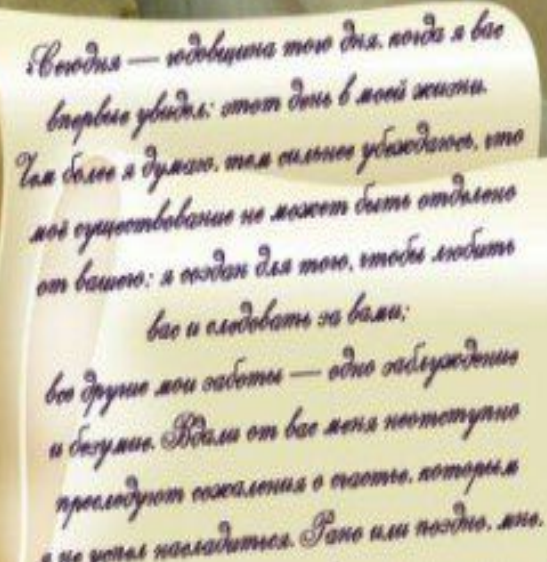 Сегодня — годовщина того дня, когда я вас
впервые увидел; этот день в моей жизни.
Чем более я думаю, тем сильнее убеждаюсь, что
моё существование не может быть отделено
от вашего; я создан для того, чтобы любить
вас и следовать за вами;
все другие мои заботы — одно заблуждение
и безумие. Вдали от вас меня неотступно
преследуют сожаления о счастье, которым
я не успел насладиться. Рано или поздно, мне,